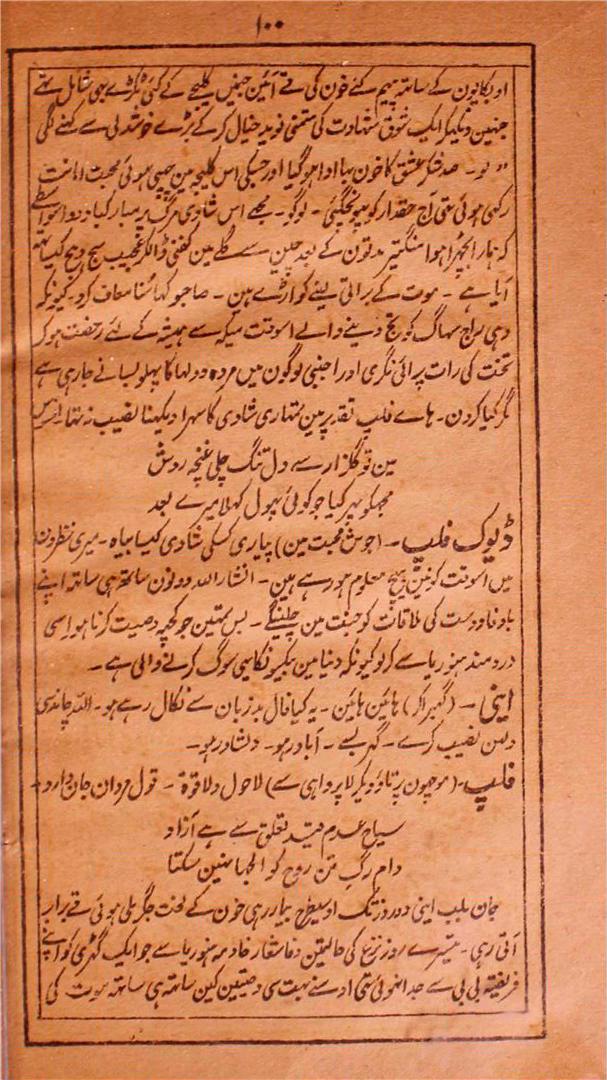 ۱۰۰
اوبکایون کے ساتھہ پیہم کئے خون کی قے آئین جنہین کلیجے کے کئی ٹکڑے بھی شامل تھے
جنہین دیکہکر ایک شوق شہادت کی متمنی فوید خیال کر کے بڑے خوشدلی سے کہنے لگی
"لو۔ صد شکر عشق کا خون بہا ادا ہو گیا اور جسکی اس کلیجہ مین چھپی ہوئی محبت امانت
رکھی ہوئی تہی آج حقدار کو پہونچگئی۔ لوگو۔ مجھے اس شادی مرگ پر مبارکباد دو اسواسطے
کہ ہمارا بچھڑا ہوا منگیتر مدتون کے بعد چین سے گلے مین کفنی ڈالکر عجیب سج دہج کیساتہہ
آیا ہے۔ موت کے براتی لینے کو اڑے ہین۔ صاحبو کہا سُنا معاف کرو۔ کیونکہ
وہی راج سہاگ کو تج دینے والے اسوقت میکہ سے ہمیشہ کے لئے رخصت ہو کر
تخت کی رات پرائی نگری اور اجنبی لوگون مین مردہ دولہا کا پہلو بسانے جا رہی ہے
مگر کیا کرون۔ ہاے فلپ تقدیر مین تمہاری شادی کا سہرا دیکہنا نصیب نہ تہا
مین تو گلزار سے دل تنگ چلی غنچہ روش
مجہکو پہر کیا جو کوئی پہول کہلا میرے بعد
ڈیوک فلپ۔ (جوش محبت مین) پیاری کسکی شادی کیسا بیاہ۔ میری نظرون
مین اسوقت کونین ہیچ معلوم ہو رہے ہین۔ انشاراللہ دونون ساتھہ ہی ساتہہ اپنے
باوفا دوست کی ملاقات کو جنت مین چلینگے۔ بس تمہین جو کچہہ وصیت کرنا ہو اسی
دردمند ہنوریا سے کر لو کیونکہ دنیا مین بیکسونکا یہی سوگ کرنے والی ہے۔
اینی۔ (گھبرا کر) ہائین ہائین۔ یہ کیا فال بد زبان سے نکال رہے ہو۔ اللہ چاندسی
دلہن نصیب کرے۔ گہر بسے۔ آباد رہو۔ دلشاد رہو۔
فلپ۔ (موچہون پر تاؤ دیکر لاپرواہی سے) لاحول ولاقوۃ۔ قول مردان جان دارد۔
سیاح عدم قید تعلق سے ہے آزاد
دام رگِ تن روح کو الجھا نہین سکتا
جان بلب اینی دو روز تک اوسیطرح بیمار رہی خون کے لخت جگر ملی ہوئی قے برابر
آتی رہی۔ تیسرے روز نزع کی حالتین وفا شعار خادمہ ہنوریا سے جو ایک گھڑی کو اپنے
فریفتہ بی بی سے جدا نہوئی تھی اوسنے بہت سی وصیتین کین ساتھہ ہی ساتھہ موت کی